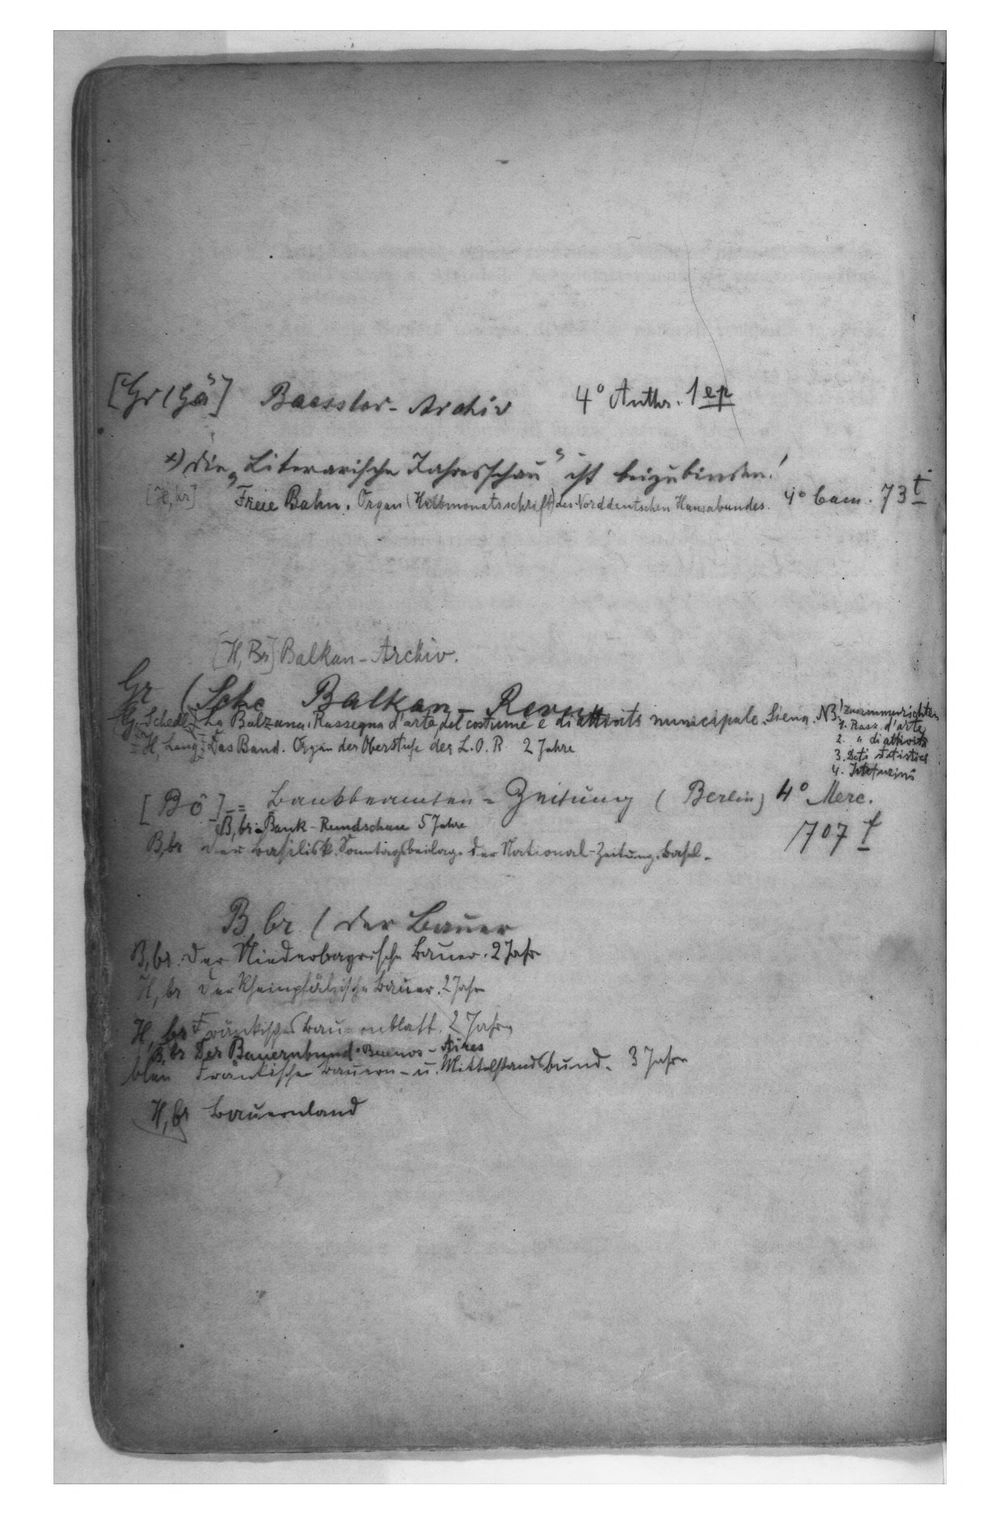 [Gr (Gä] Baessler-Archiv 4° Anthr. 1 ep
x) die „Literarische Jahresschau" ist beizubinden!
[H, br] Freie Bahn. Organ (Halbmonatsschrift) des Norddeutschen Hansabundes. 4° Cam. 73 t
[H, Br] Balkan-Archiv.
Gr (Sche Balkan-Revue
La Balzana. Rassegna d'arte del costume e di attività municipale. Siena. NB! Zusammenrichten
1. Rass. d'arte
H, Lang Das Band. Organ der Oberstufe der L.O.R 2 Jahre
2. " di attività
3. Dati statistici
4.
[Bö] = Bankbeamten-Zeitung (Berlin) 4° Merc.
B, br = Bank-Rundschau 5 Jahre
707 f
B, br Der Basilisk. Sonntagsbeilage der National-Zeitung. Basel.
B, br (Der Bauer
B, br. Der Niederbayrische Bauer. 2 Jahr
H, br Der Rheinpfälzische Bauer. 2 Jahr
H, br Fränkisches Bauernblatt. 2 Jahr
B, br Der Bauernbund. Buenos-Aires
Fränkischer Bauern- u. Mittelstandsbund. 3 Jahr
H, br Bauernland